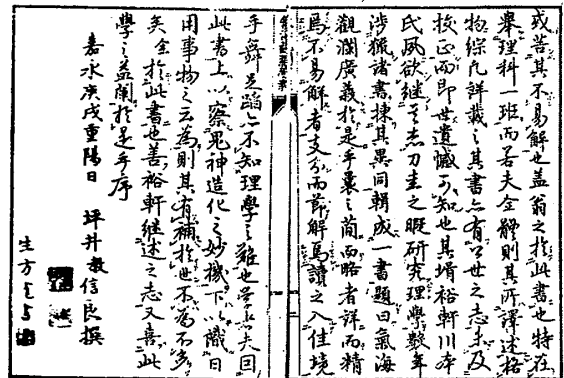 或苦其不易解也蓋翁之於此書也特在
舉理科一班而若夫全體則其所譯述格
物綜凡詳載之其書亦有公世之志未及
校正而即世遺憾可知也其壻裕軒川本
氏夙欲繼其志刀圭之暇研究理學數年
涉獵諸書揀其異同輯成一書題曰氣海
觀瀾廣義於是乎曩之簡而略者詳而精
焉不易解者支分而節解焉讀之入佳境
手舞足蹈亦不知理學之難也
此書上以察鬼神造化之妙機下以識日
用事物之云為則其有補於世不為不多
矣余於此書也善裕軒繼述之志又喜此
學之益闡於是乎序
嘉永庚戌重陽日 坪井教信良撰